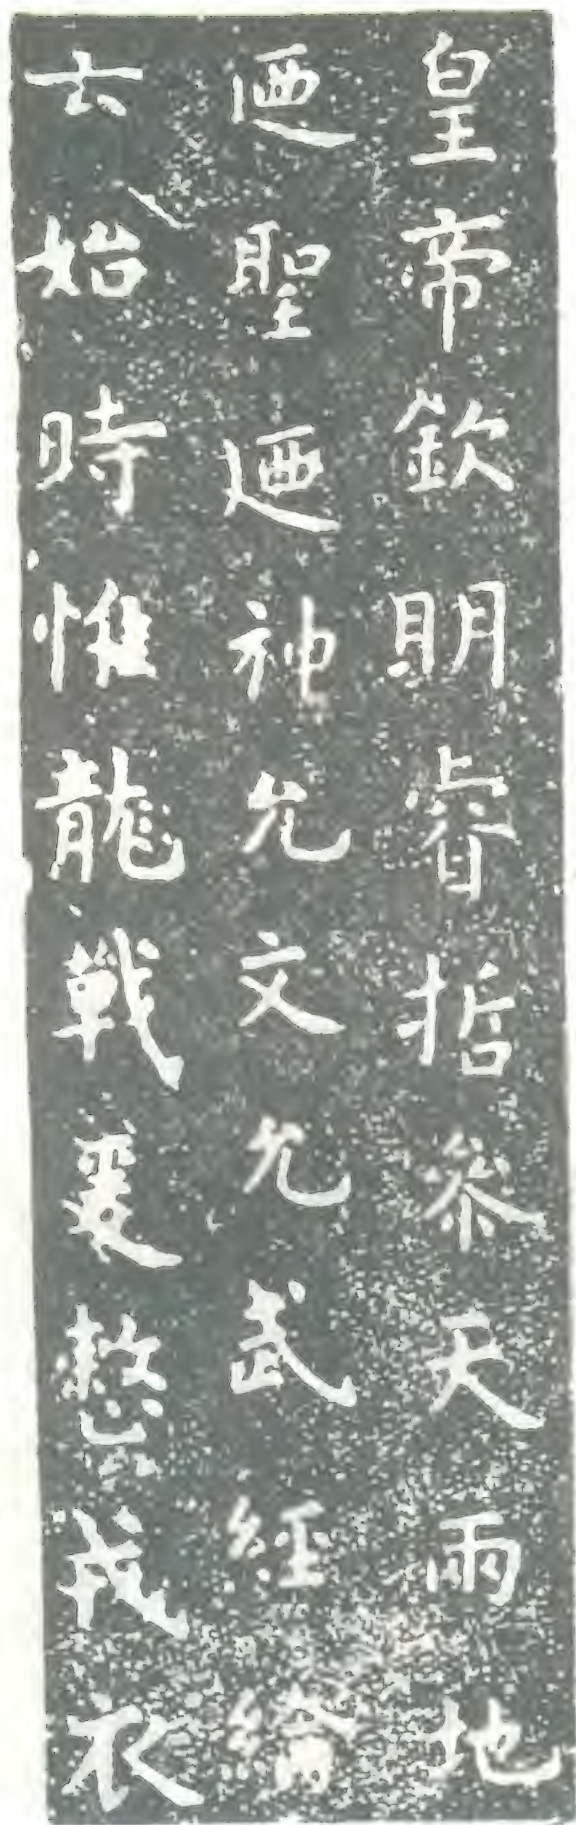 皇帝欽明睿哲參天兩地
迺聖迺神允文允武經綸
云始時惟龍戰爰整戎衣